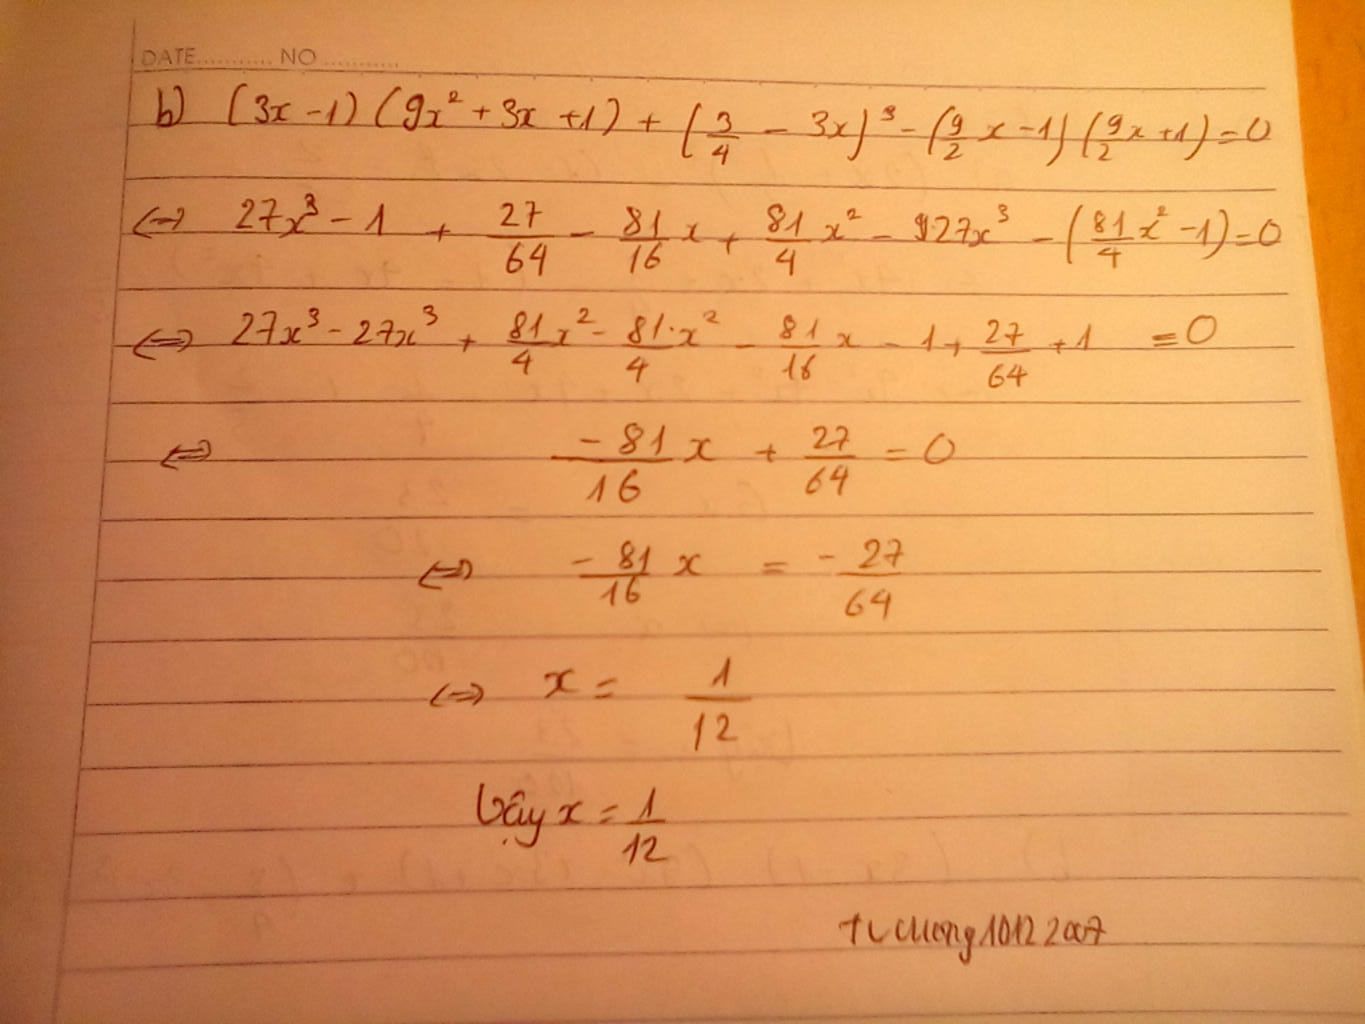 DATE........... NO ...........
b) (3x - 1) (9x² + 3x + 1) + (3/4 - 3x)³ - (9/2 x - 1) (9/2 x + 1) = 0
⇔ 27x³ - 1 + 27/64 - 81/16 x + 81/4 x² - 27x³ - (81/4 x² - 1) = 0
⇔ 27x³ - 27x³ + 81/4 x² - 81/4 x² - 81/16 x - 1 + 27/64 + 1 = 0
⇔ -81/16 x + 27/64 = 0
⇔ -81/16 x = -27/64
⇔ x = 1/12
Vậy x = 1/12
10122007